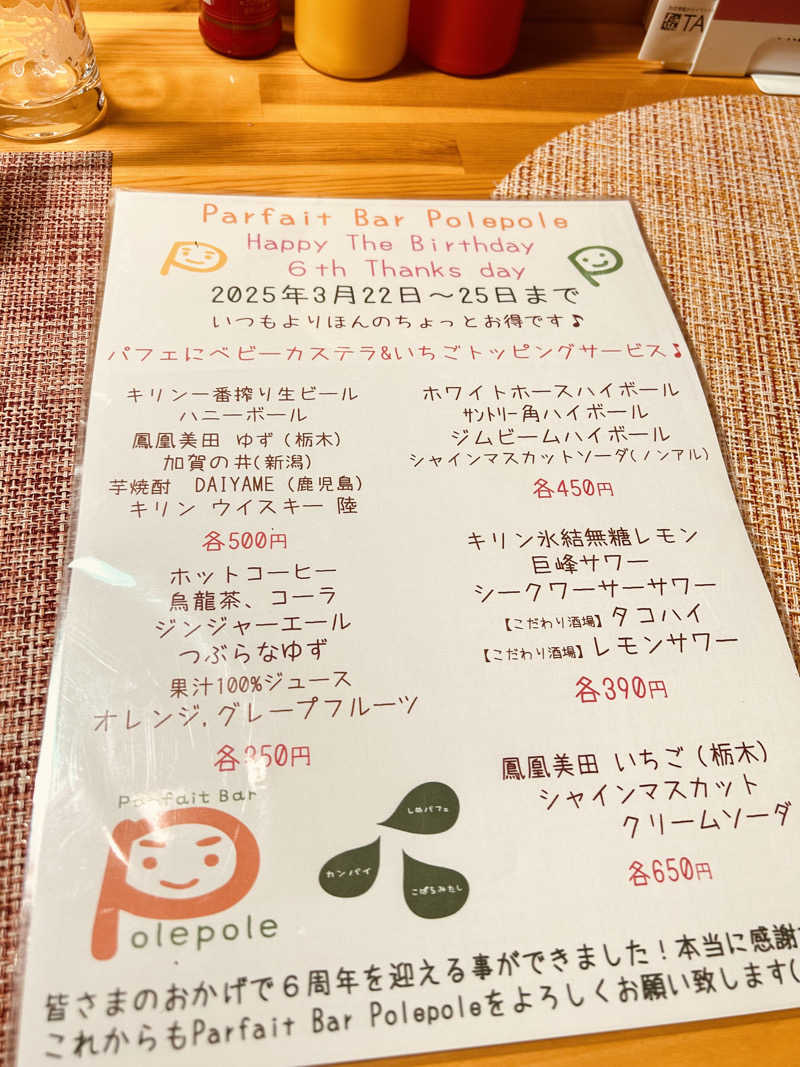 TA
Parfait Bar Polepole
Happy The Birthday
6th Thanks day
2025年3月22日～25日まで
いつもよりほんのちょっとお得です♪
パフェにベビーカステラ&いちごトッピングサービス♪
キリン一番搾り生ビール
ハニーボール
鳳凰美田 ゆず (栃木)
加賀の井(新潟)
芋焼酎 DAIYAME (鹿児島)
キリン ウイスキー 陸
各500円
ホットコーヒー
烏龍茶、コーラ
ジンジャーエール
つぶらなゆず
果汁100%ジュース
オレンジ,グレープフルーツ
各350円
ホワイトホースハイボール
ｻﾝﾄﾘｰ角ハイボール
ジムビームハイボール
シャインマスカットソーダ(ノンアル)
各450円
キリン氷結無糖レモン
巨峰サワー
シークワーサーサワー
【こだわり酒場】タコハイ
【こだわり酒場】レモンサワー
各390円
鳳凰美田 いちご (栃木)
シャインマスカット
クリームソーダ
各650円
Parfait Bar
Polepole
しめパフェ
カンパイ
こばらみたし
皆さまのおかげで6周年を迎える事ができました！本当に感謝
これからもParfait Bar Polepoleをよろしくお願い致します(